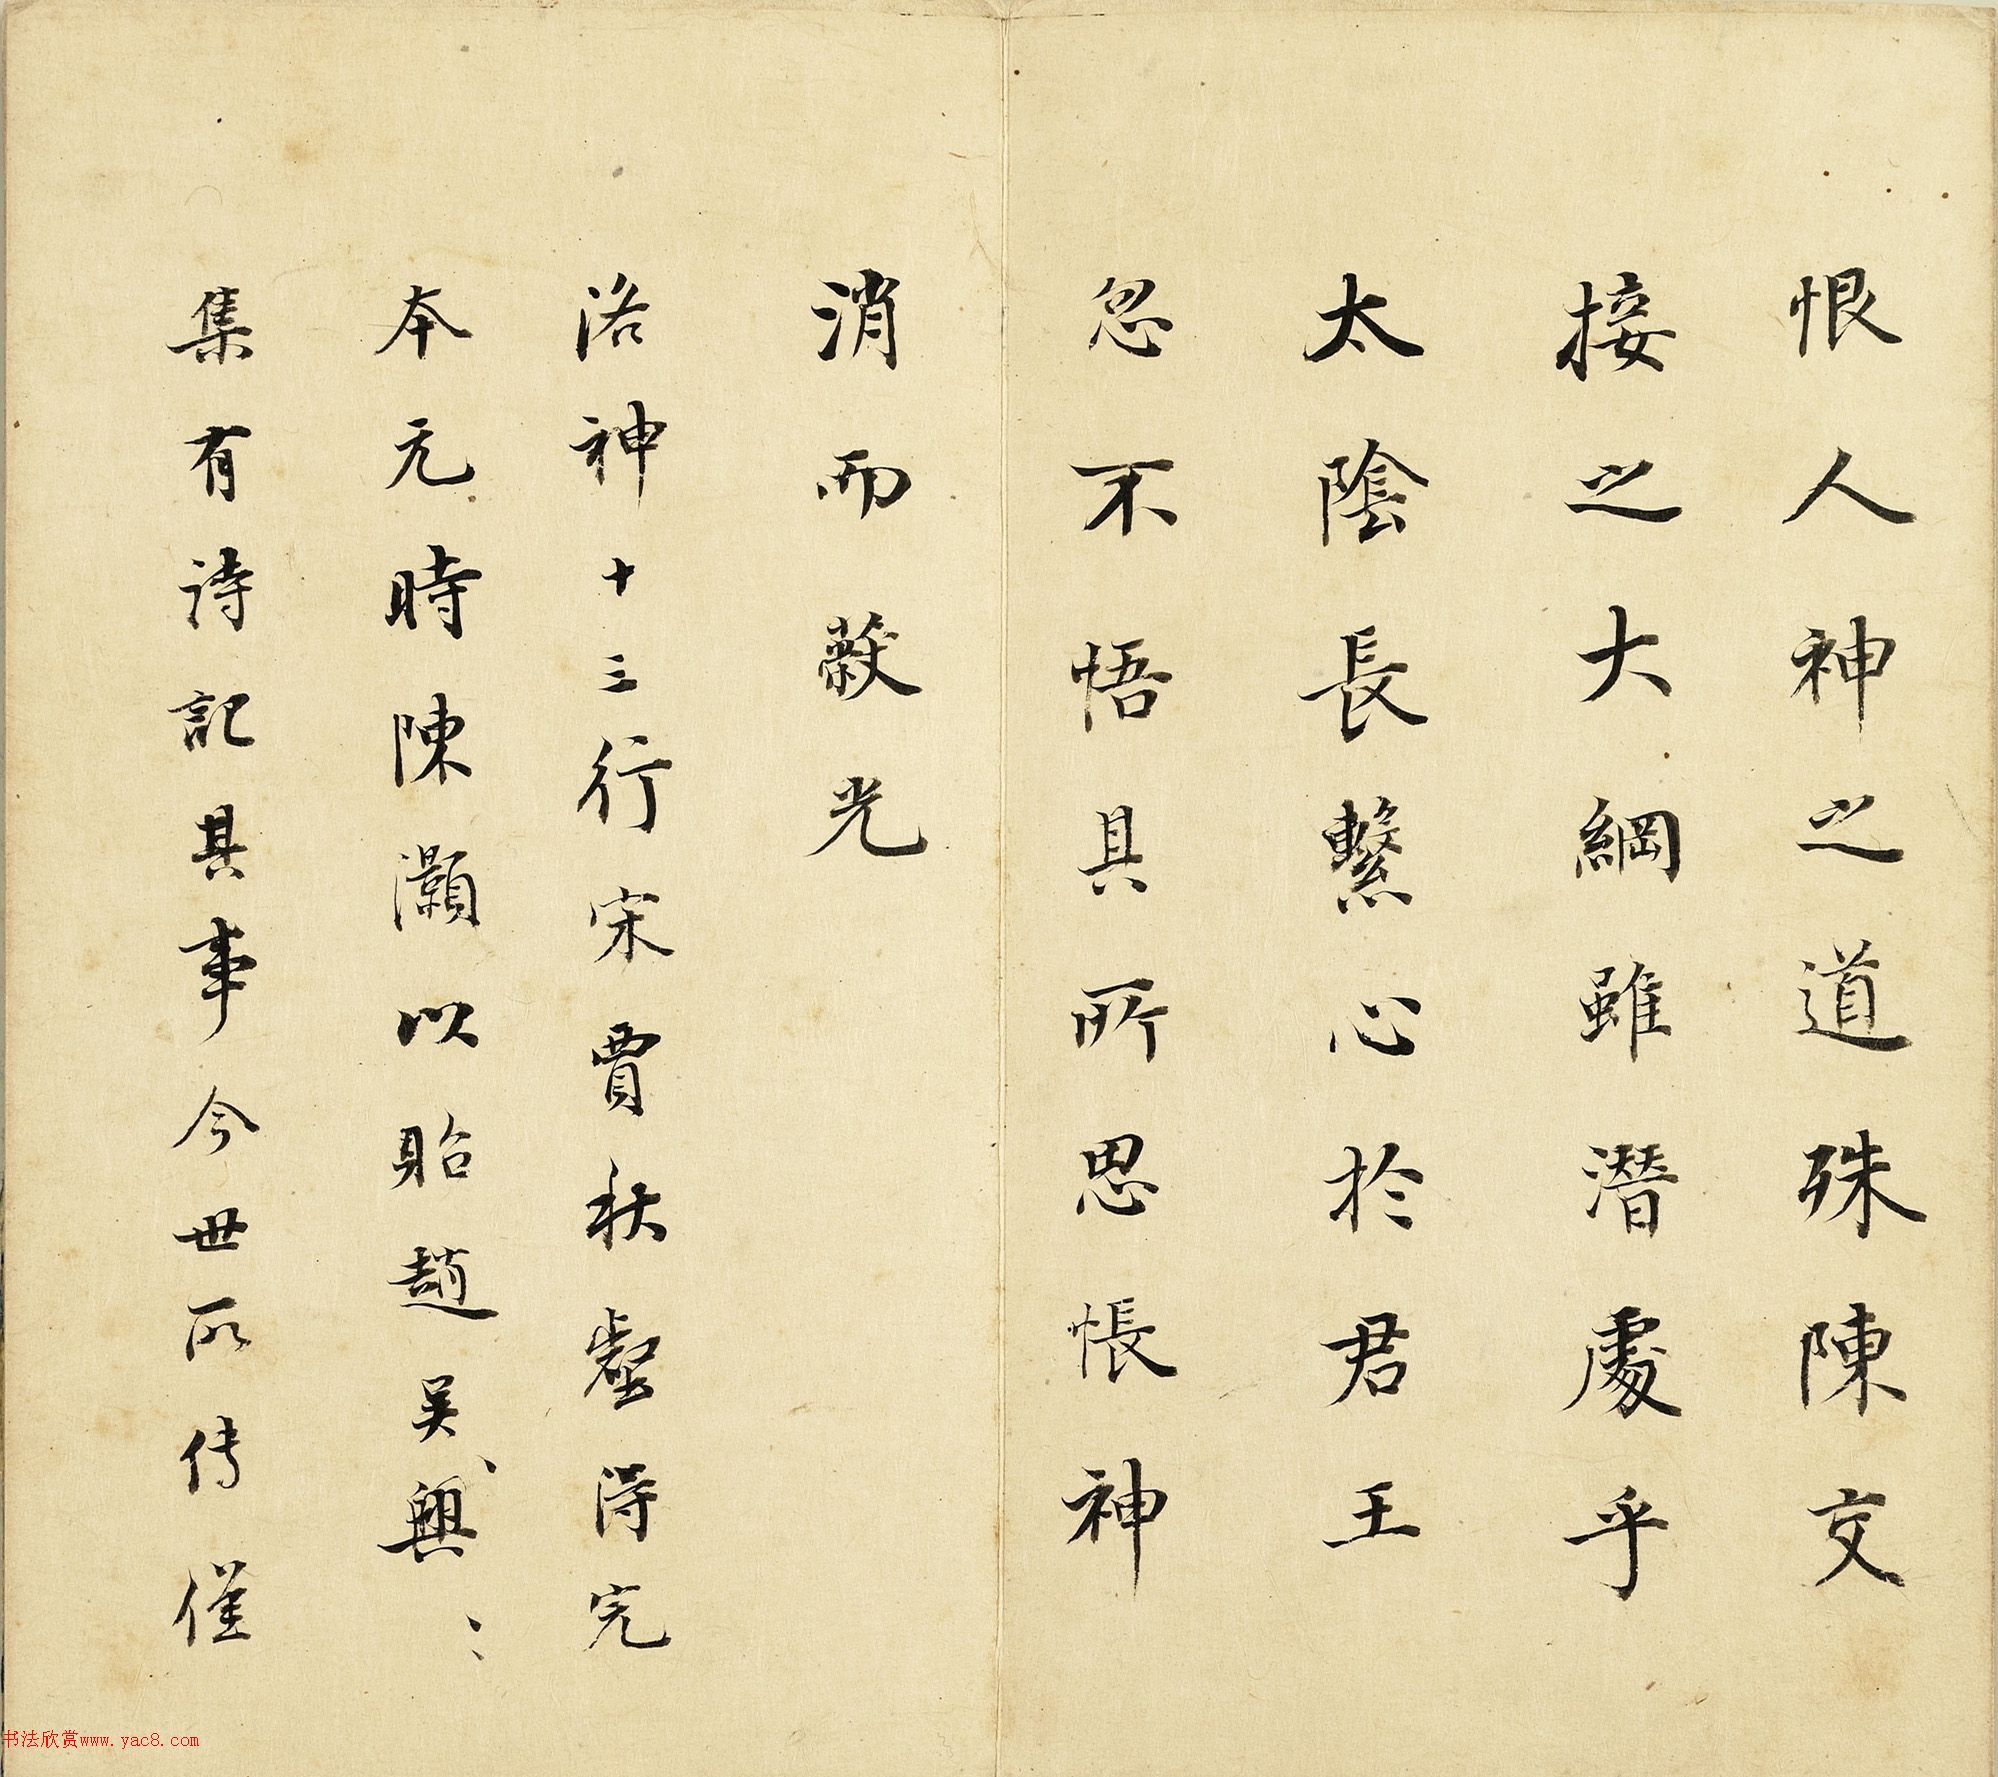 恨人神之道殊陳交
接之大綱雖潛處乎
太陰長繫心於君王
忽不悟其所思悵神
消而蔽光
洛神十三行宋賈秋壑得完
本元時陳灝以貽趙吴興
集有詩記其事今世所傳僅
书法欣赏www.yac8.com